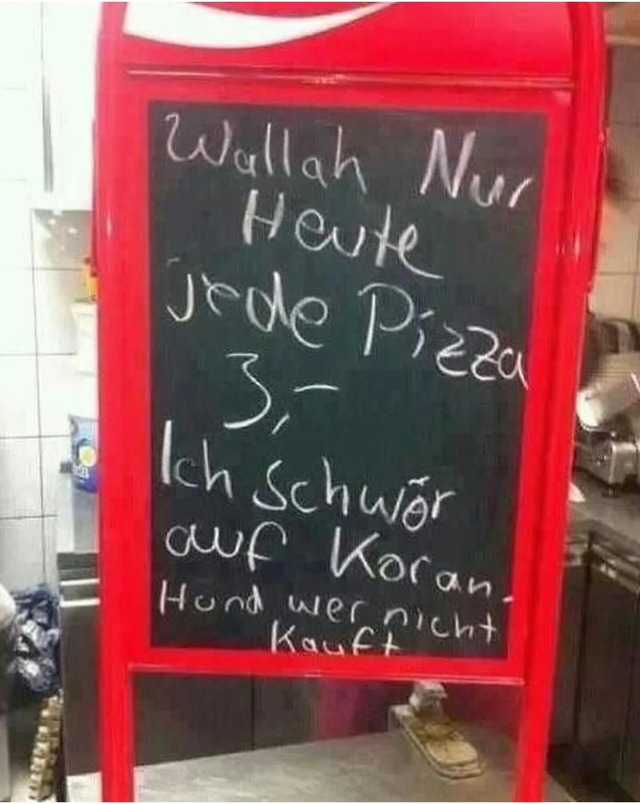 Wallah Nur
Heute
jede Pizza
3,-
Ich schwör
auf Koran.
Hund wer nicht
Kauft